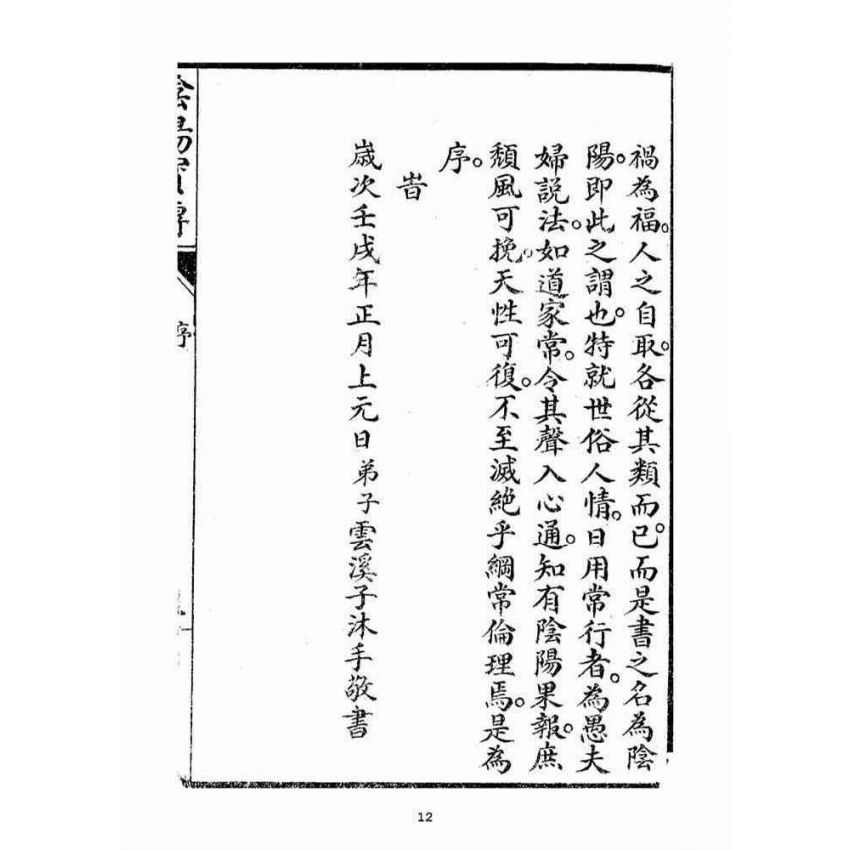 禍為福。人之自取。各從其類而已。而是書之名為陰
陽。即此之謂也。特就世俗人情。日用常行者。為愚夫
婦說法。如道家常。令其聲入心通。知有陰陽果報。庶
頹風可挽。天性可復。不至滅絶乎綱常倫理焉。是為
序。
旹
歲次壬戌年正月上元日弟子雲溪子沐手敬書
序
12